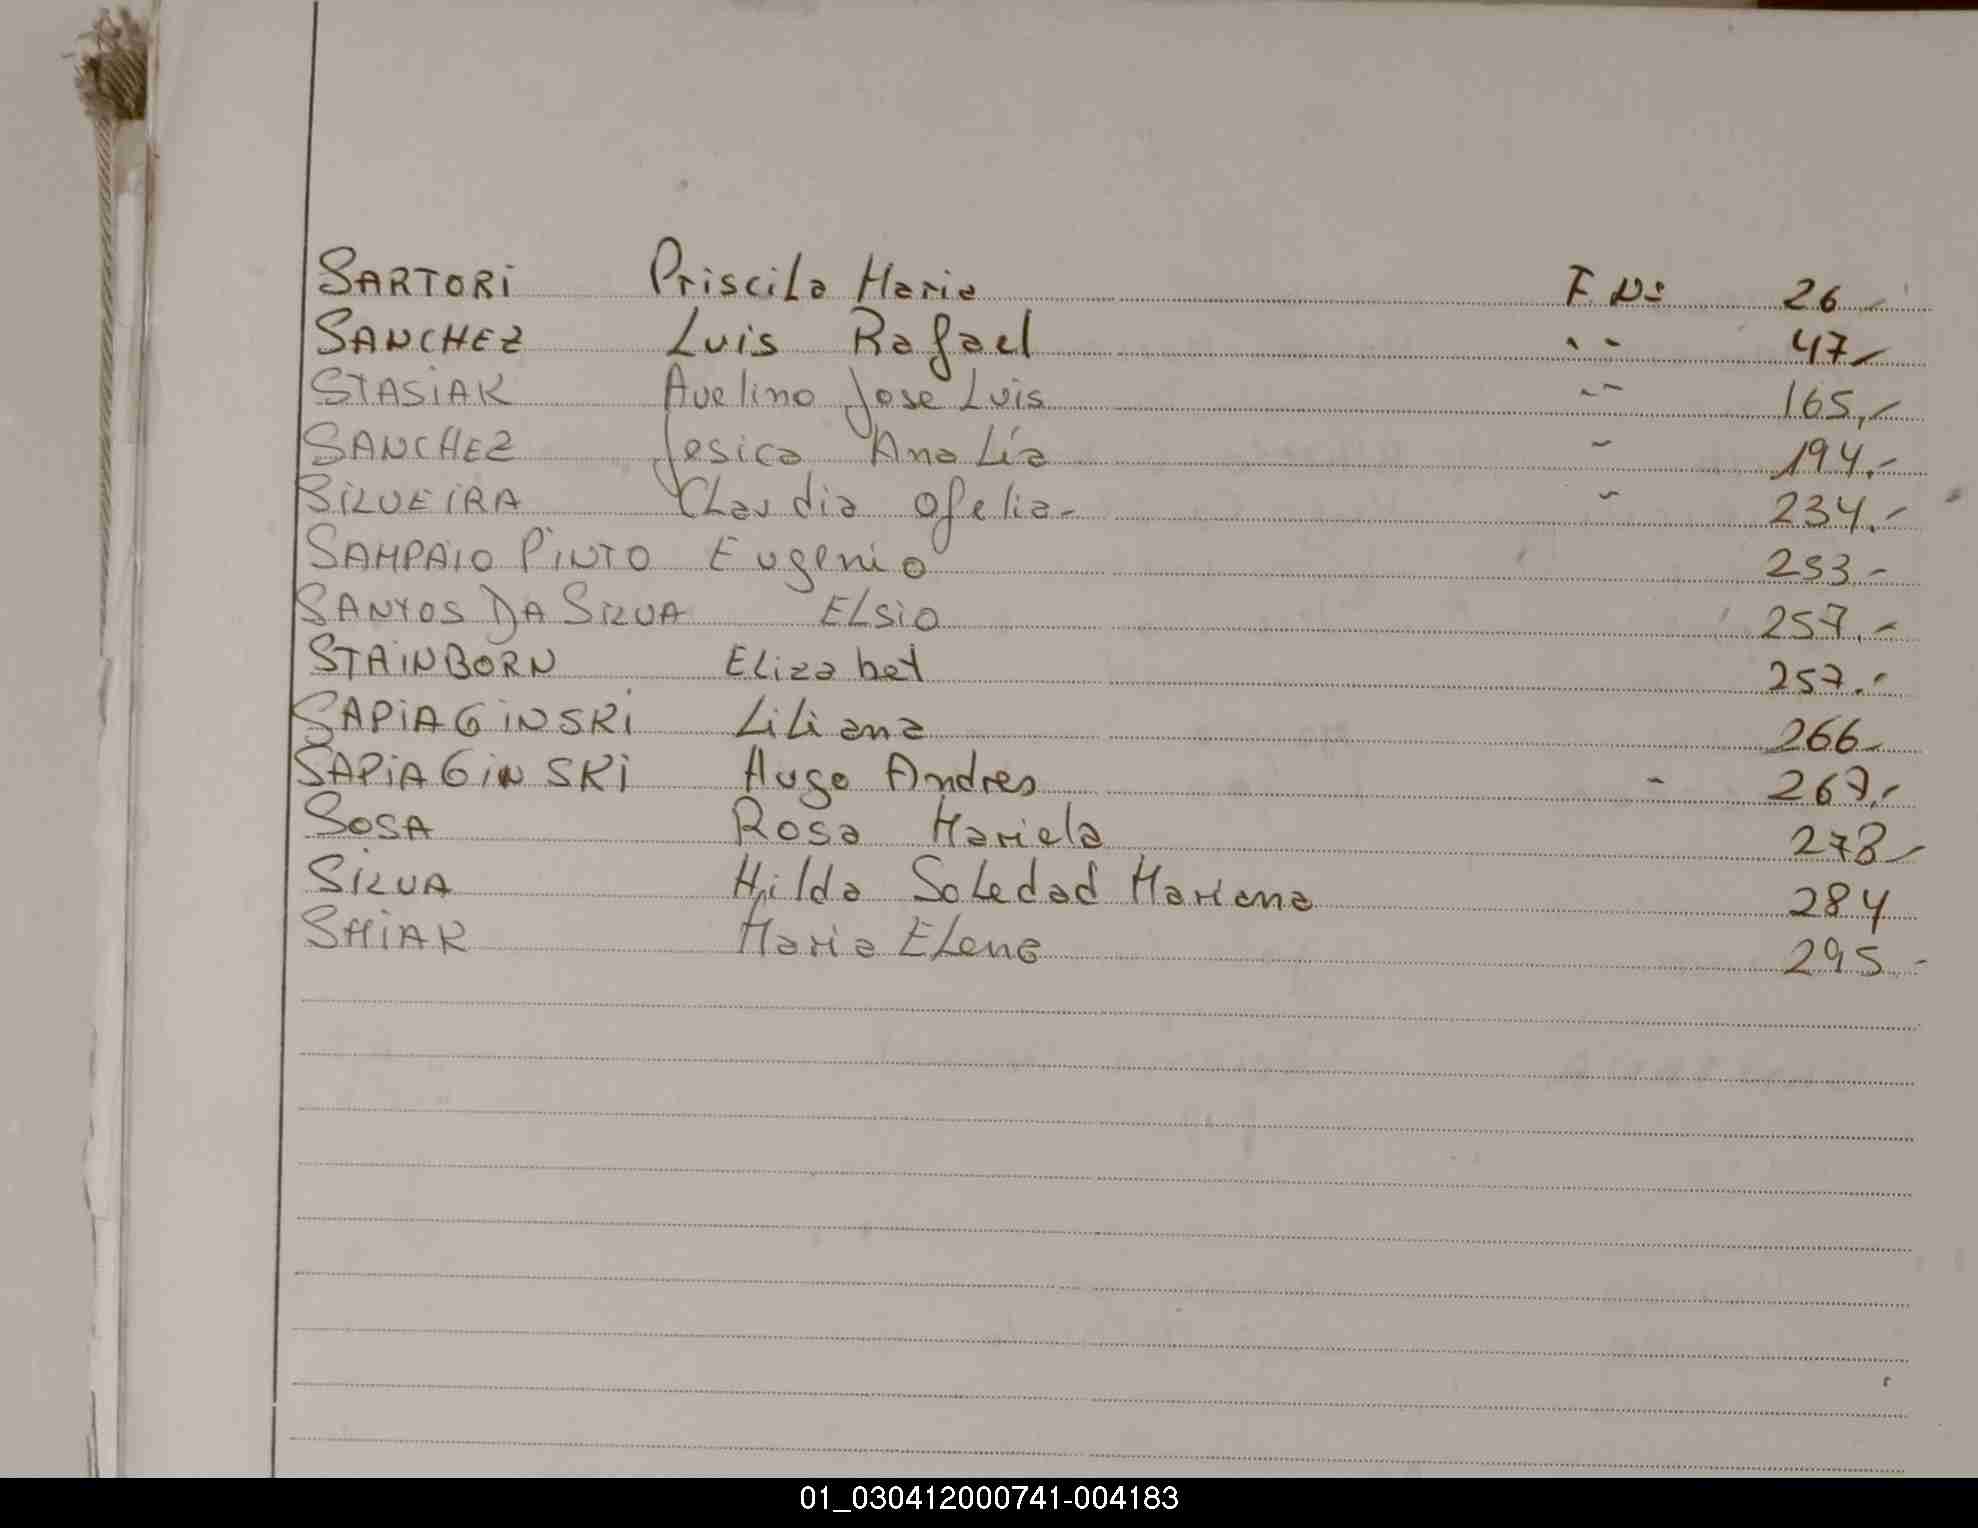 SARTORi Priscila Maria F Nº 26
SANCHEZ Luis Rafael " 47
STASiAK Avelino Jose Luis " 165,-
SANCHEZ Jesica Analía " 194.-
SiLVEiRA Claudia Ofelia- " 234.-
SAMPAiO PiNTO Eugenio 253.-
SANTOS DA SiLVA ELSiO 257.-
STAiNBORN Elizabet 257.-
SAPiAGiNSKi Liliana 266-
SAPiAGiNSKi Hugo Andres " 267.-
SOSA Rosa Mariela 278-
SiLVA Hilda Soledad Mariana 284
SMiAK Maria Elena 295.-
01_030412000741-004183